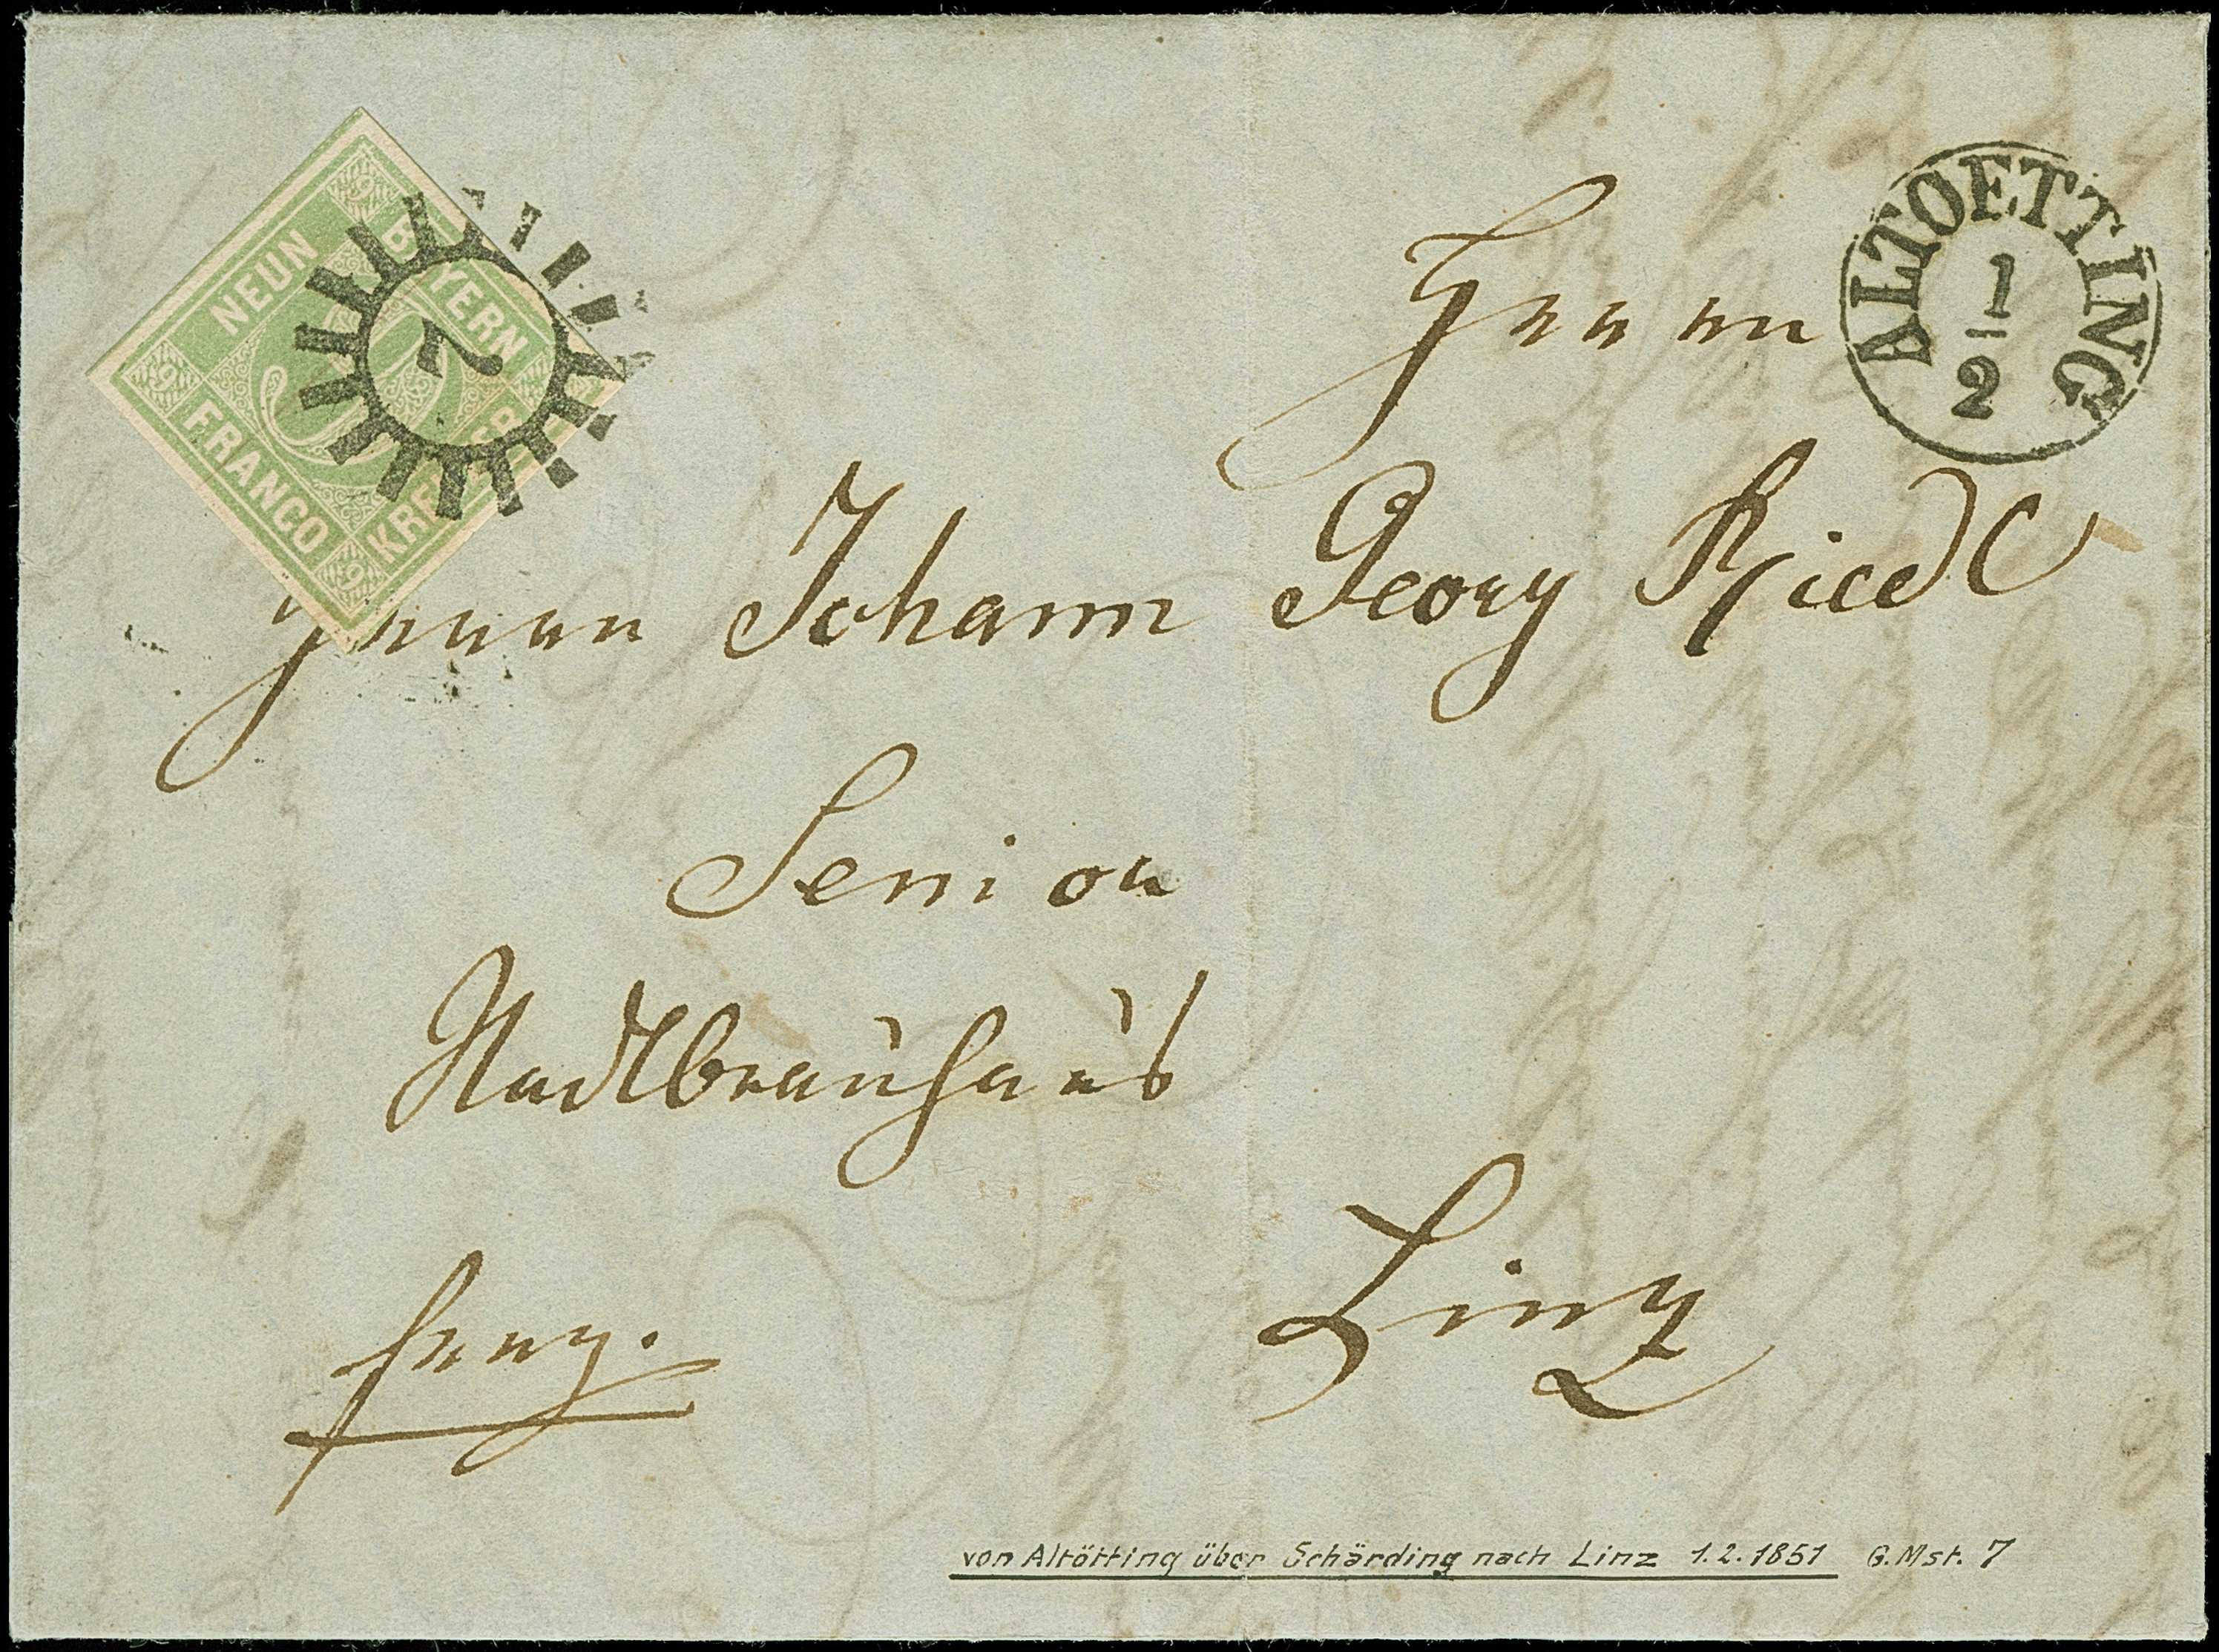 NEUN
BAYERN
FRANCO
KREUZER
9
9
9
9
7
ALTOETTING
1
2
Herrn
Herrn Johann Georg Riedl
Senior
Stadlbräuhaus
Linz
franz.
von Altötting über Schärding nach Linz 1.2.1851 G.Mst. 7